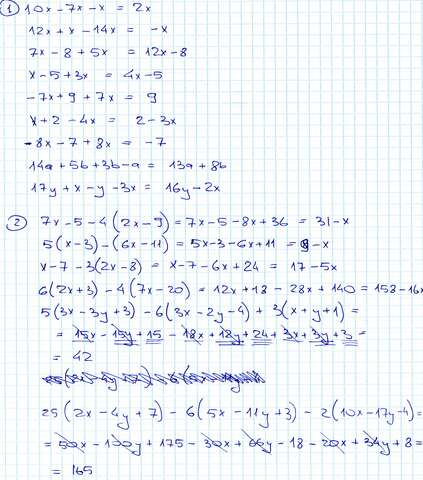 1 10x - 7x - x = 2x
12x + x - 14x = -x
7x - 8 + 5x = 12x - 8
x - 5 + 3x = 4x - 5
-7x + 9 + 7x = 9
x + 2 - 4x = 2 - 3x
-8x - 7 + 8x = -7
14a + 5b + 3b - a = 13a + 8b
17y + x - y - 3x = 16y - 2x
2 7x - 5 - 4(2x - 9) = 7x - 5 - 8x + 36 = 31 - x
5(x - 3) - (6x - 11) = 5x - 3 - 6x + 11 = 8 - x
x - 7 - 3(2x - 8) = x - 7 - 6x + 24 = 17 - 5x
6(2x + 3) - 4(7x - 20) = 12x + 18 - 28x + 140 = 158 - 16x
5(3x - 3y + 3) - 6(3x - 2y - 4) + 3(x + y + 1) =
= 15x - 15y + 15 - 18x + 12y + 24 + 3x + 3y + 3 =
= 42
25(2x - 4y + 7) - 6(5x - 11y + 3) - 2(10x - 17y - 4) =
= 50x - 100y + 175 - 30x + 66y - 18 - 20x + 34y + 8 =
= 165